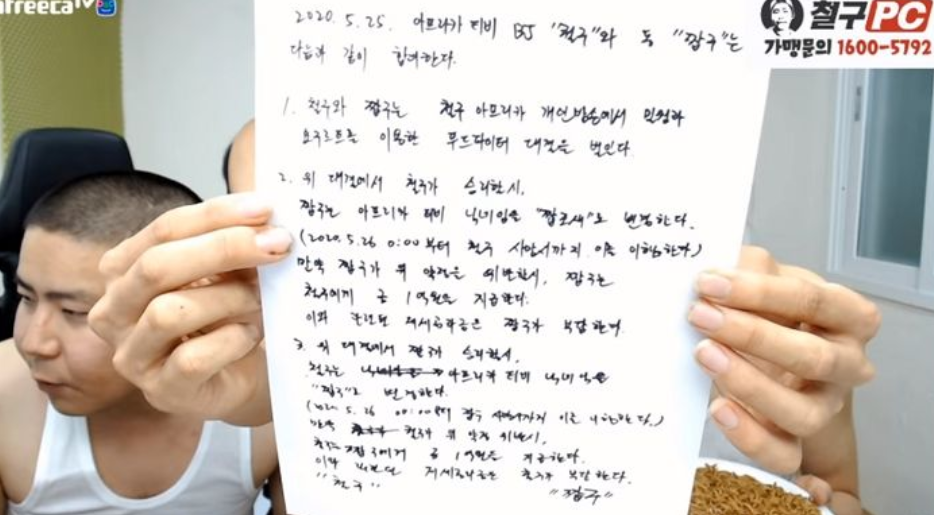 afreecaTV
철구PC
가맹문의 1600-5792
2020. 5. 25. 아프리카 티비 BJ "철구"와 동 "짭구"는
다음과 같이 합의한다.
1. 철구와 짭구는 철구 아프리카 개인방송에서 민청과
요구르트를 이용한 푸드파이터 대결을 벌인다.
2. 위 대결에서 철구가 승리할시,
짭구는 아프리카 티비 닉네임을 로 변경한다.
(2020. 5. 26 0:00부터 철구 까지 이를 이행한다)
만약 짭구가 위 약정을 위반할시, 짭구는
철구에게 금 1억원을 지급한다.
이와 관련된 제세공과금은 짭구가 부담한다.
3. 위 대결에서 짭구가 승리할시,
철구는 아프리카 티비 닉네임을
"짭구"로 변경한다.
(2020. 5. 26 00:00부터 짭구 까지 이를 이행한다.)
만약 철구가 위 약정 위반시,
철구는 짭구에게 금 1억원을 지급한다.
이와 관련된 제세공과금은 철구가 부담한다.
"철구" "짭구"